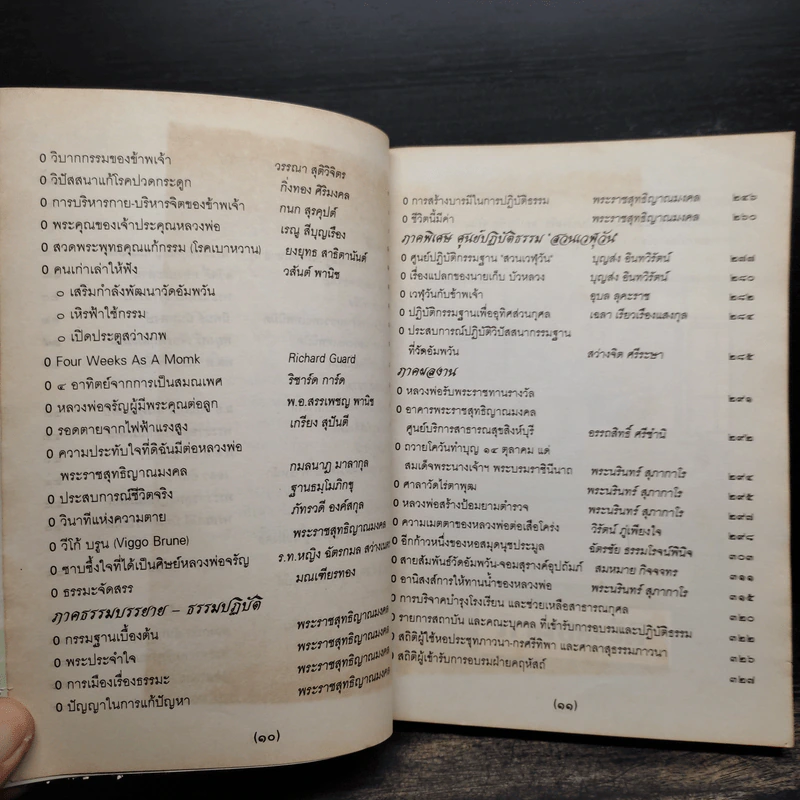 ๐ วิบากกรรมของข้าพเจ้า วรรณา สุติวิจิตร
๐ วิปัสสนาแก้โรคปวดกระดูก กิ่งทอง ศิริมงคล
๐ การบริหารกาย-บริหารจิตของข้าพเจ้า กนก สุรคุปต์
๐ พระคุณของเจ้าประคุณหลวงพ่อ เรณู สี่บุญเรือง
๐ สวดพระพุทธคุณแก้กรรม (โรคเบาหวาน) ยงยุทธ สาธิตานันต์
๐ คนเก่าเล่าให้ฟัง วสันต์ พานิช
๐ เสริมกำลังพัฒนาวัดอัมพวัน
๐ เหิรฟ้าใช้กรรม
๐ เปิดประตูสว่างภพ
๐ Four Weeks As A Momk Richard Guard
๐ ๔ อาทิตย์จากการเป็นสมณเพศ ริชาร์ด การ์ด
๐ หลวงพ่อจรัญผู้มีพระคุณต่อลูก พ.อ.สรรเพชญ พานิช
๐ รอดตายจากไฟฟ้าแรงสูง เกรียง สุปันตี
๐ ความประทับใจที่ดิฉันมีต่อหลวงพ่อ
พระราชสุทธิญาณมงคล กมลนาฎ มาลากุล
๐ ประสบการณ์ชีวิตจริง ฐานธมฺโมภิกขุ
๐ วินาทีแห่งความตาย ภัทรวดี องค์สกุล
๐ วีโก้ บรูน (Viggo Brune) พระราชสุทธิญาณมงคล
๐ ซาบซึ้งใจที่ได้เป็นศิษย์หลวงพ่อจรัญ ร.ท.หญิง ฉัตรกมล สว่างเนตร
๐ ธรรมะจัดสรร มณเฑียรทอง
ภาคธรรมบรรยาย – ธรรมปฏิบัติ
๐ กรรมฐานเบื้องต้น พระราชสุทธิญาณมงคล
๐ พระประจำใจ พระราชสุทธิญาณมงคล
๐ การเมืองเรื่องธรรมะ พระราชสุทธิญาณมงคล
๐ ปัญญาในการแก้ปัญหา พระราชสุทธิญาณมงคล
(๑๐)
๐ การสร้างบารมีในการปฏิบัติธรรม พระราชสุทธิญาณมงคล ๒๔๖
๐ ชีวิตนี้มีค่า พระราชสุทธิญาณมงคล ๒๖๐
ภาคพิเศษ ศูนย์ปฏิบัติธรรม "สวนเวฬุวัน"
๐ ศูนย์ปฏิบัติกรรมฐาน "สวนเวฬุวัน" บุญส่ง อินทวิรัตน์ ๒๗๗
๐ เรื่องแปลกของนายเก็บ บัวหลวง บุญส่ง อินทวิรัตน์ ๒๘๐
๐ เวฬุวันกับข้าพเจ้า อุบล ลุคะราช ๒๘๒
๐ ปฏิบัติกรรมฐานเพื่ออุทิศส่วนกุศล เฉลา เรียวเรืองแสงกุล ๒๘๔
๐ ประสบการณ์ปฏิบัติวิปัสสนากรรมฐาน
ที่วัดอัมพวัน สว่างจิต ศรีระษา ๒๘๕
ภาคผลงาน
๐ หลวงพ่อรับพระราชทานรางวัล ๒๙๑
๐ อาคารพระราชสุทธิญาณมงคล
ศูนย์บริการสาธารณสุขสิงห์บุรี อรรถสิทธิ์ ศรีชำนิ ๒๙๒
๐ ถวายโควันทำบุญ ๑๔ ตุลาคม แด่
สมเด็จพระนางเจ้าฯ พระบรมราชินีนาถ พระนรินทร์ สุภากาโร ๒๙๔
๐ ศาลาวัดไร่ตาพุฒ พระนรินทร์ สุภากาโร ๒๙๕
๐ หลวงพ่อสร้างป้อมยามตำรวจ พระนรินทร์ สุภากาโร ๒๙๘
๐ ความเมตตาของหลวงพ่อต่อเสือโคร่ง วิรัตน์ ภู่เพียงใจ ๒๙๘
๐ อีกก้าวหนึ่งของหอสมุดนุชประมูล ฉัตรชัย ธรรมโรจน์พินิจ ๓๐๓
๐ สายสัมพันธ์วัดอัมพวัน-จอมสุรางค์อุปถัมภ์ สมหมาย กิจจจทร ๓๑๑
๐ อานิสงส์การให้ทานน้ำของหลวงพ่อ พระนรินทร์ สุภากาโร ๓๑๕
๐ การบริจาคบำรุงโรงเรียน และช่วยเหลือสาธารณกุศล ๓๒๐
๐ รายการสถาบัน และคณะบุคคล ที่เข้ารับการอบรมและปฏิบัติธรรม ๓๒๒
๐ สถิติผู้ใช้หอประชุมภาวนา-กรศรีทิพา และศาลาสุธรรมภาวนา ๓๒๖
๐ สถิติผู้เข้ารับการอบรมฝ่ายคฤหัสถ์ ๓๒๗
(๑๑)